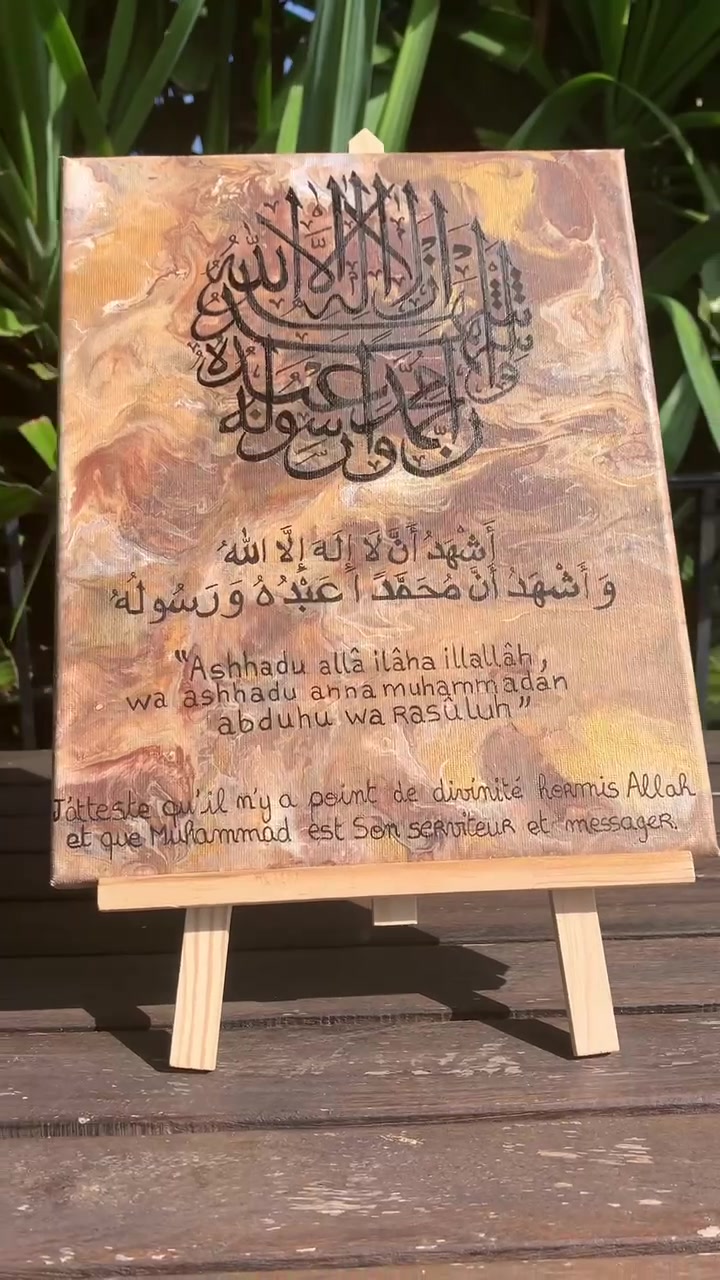 أَشْهَدُ أَنَّ لَا إِلَهَ إِلَّا اللهُ
وَ أَشْهَدُ أَنَّ مُحَمَّدًا عَبْدُهُ وَ رَسُولُهُ
"Ashhadu allâ ilâha illallâh,
wa ashhadu anna muhammadan
abduhu wa Rasûluh"
J'atteste qu'il n'y a point de divinité hormis Allah
et que Muhammad est Son serviteur et messager.